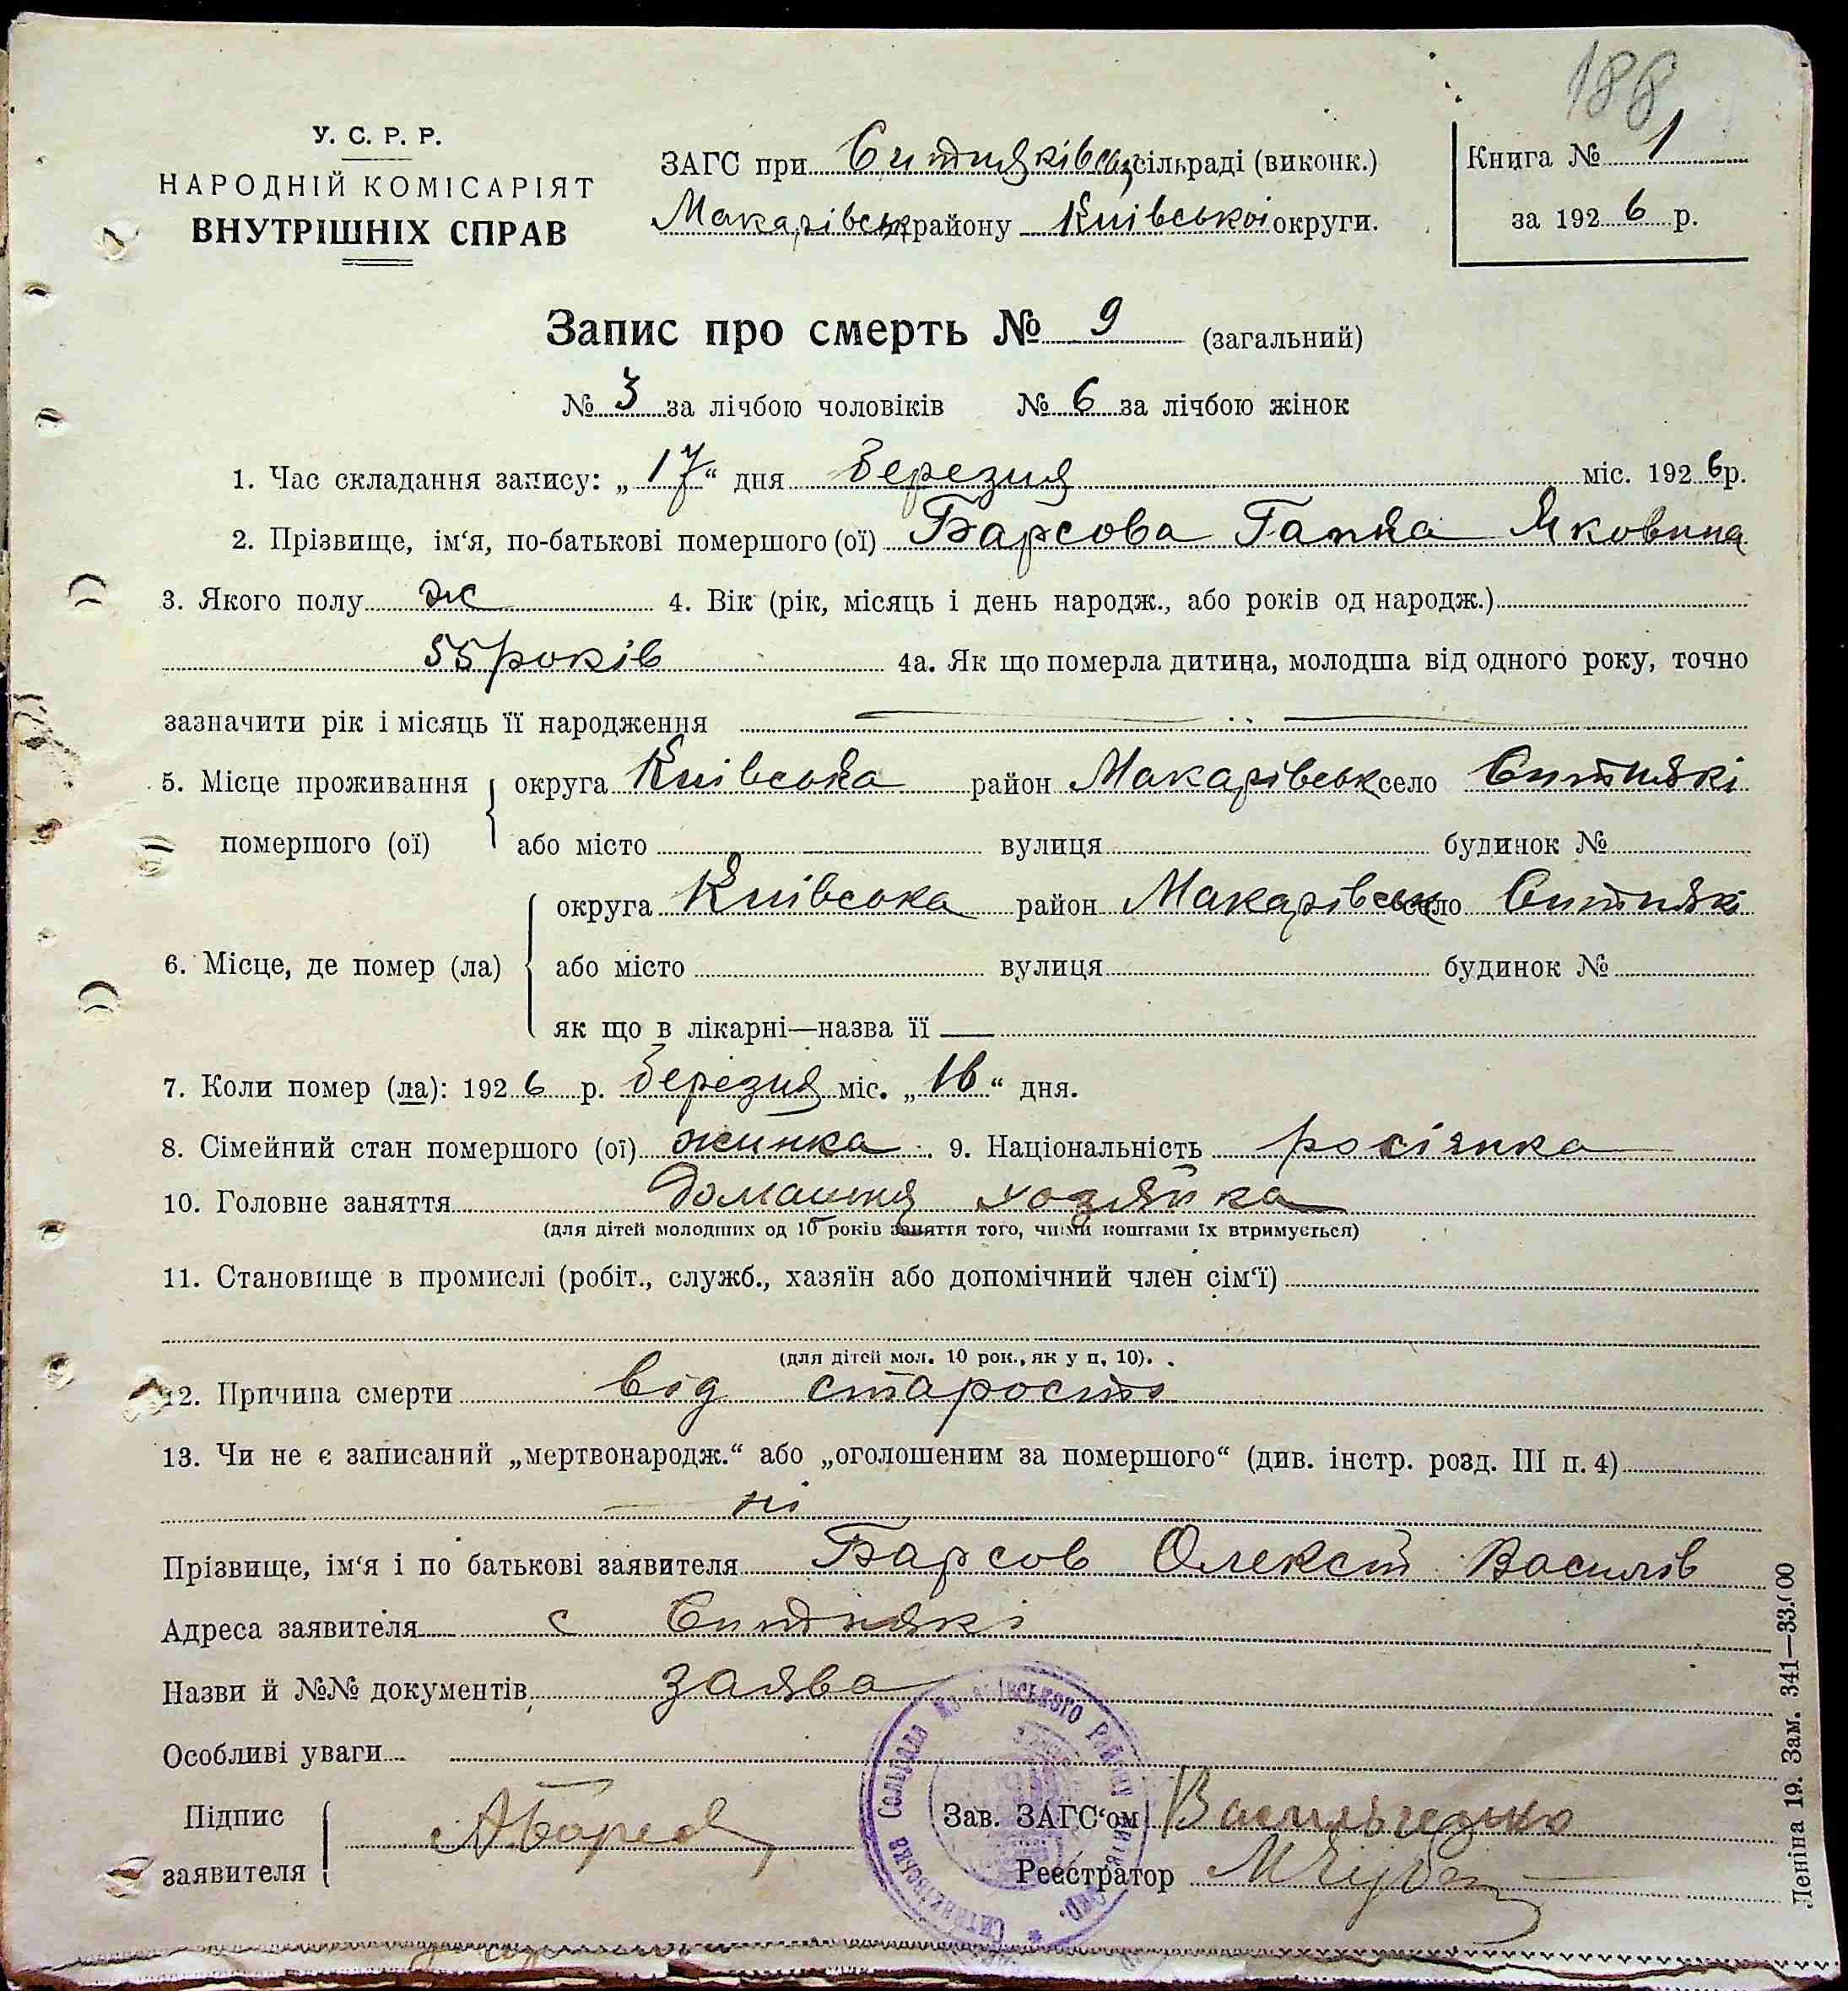 188
У. С. Р. Р.
НАРОДНІЙ КОМІСАРІЯТ
ВНУТРІШНІХ СПРАВ
ЗАГС при Ситняківськ сільраді (виконк.)
Макарівськ району Київської округи.
Книга № 1
за 1926 р.
Запис про смерть № 9 (загальний)
№ 3 за лічбою чоловіків № 6 за лічбою жінок
1. Час складання запису: „17“ дня Березня міс. 1926 р.
2. Прізвище, ім‘я, по-батькові помершого (ої) Барсова Гапка Яковина
3. Якого полу ж 4. Вік (рік, місяць і день народж., або років од народж.)
55 років 4а. Як що померла дитина, молодша від одного року, точно
зазначити рік і місяць її народження
5. Місце проживання помершого (ої) округа Київська район Макарівськ село Ситнякі
або місто вулиця будинок №
6. Місце, де помер (ла) округа Київська район Макарівськ село Ситнякі
або місто вулиця будинок №
як що в лікарні—назва її —
7. Коли помер (ла): 1926 р. Березня міс. „16“ дня.
8. Сімейний стан помершого (ої) жинка 9. Національність росіянка
10. Головне заняття домашня хозяйка
(для дітей молодших од 10 років заняття того, чиїми коштами їх втримується)
11. Становище в промислі (робіт., служб., хазяїн або допомічний член сім‘ї)
(для дітей мол. 10 рок., як у п. 10).
12. Причина смерти від старости
13. Чи не є записаний „мертвонародж.“ або „оголошеним за помершого“ (див. інстр. розд. III п. 4)
ні
Прізвище, ім‘я і по батькові заявителя Барсов Олексій Василів
Адреса заявителя с Ситнякі
Назви й №№ документів заява
Особливі уваги
Підпис заявителя АБарсов
Зав. ЗАГС‘ом Васильченко
Реєстратор
Леніна 19. Зам. 341—33.000